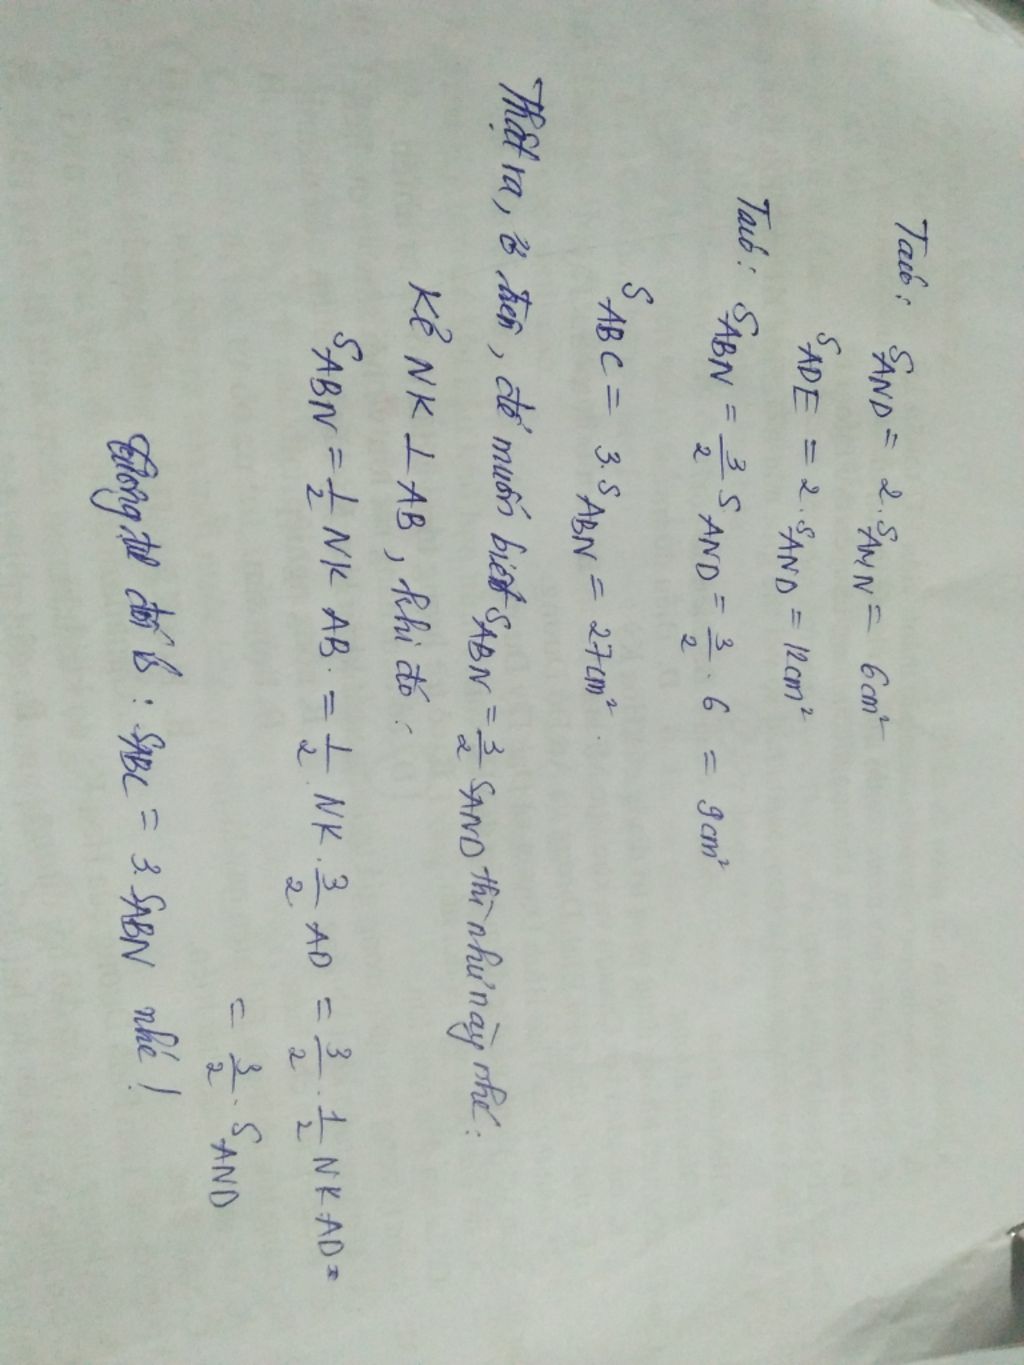 Ta có: S AND = 2. S AMN = 6cm²
S ADE = 2. S AND = 12cm²
Ta có: S ABN = 3/2 S AND = 3/2 . 6 = 9cm²
S ABC = 3. S ABN = 27cm².
Thật ra, ở trên, để muốn biết S ABN = 3/2 S AND thì như này nhé:
Kẻ NK ⊥ AB, khi đó:
S ABN = 1/2 NK AB. = 1/2 . NK . 3/2 AD = 3/2 . 1/2 NK AD =
= 3/2 . S AND
Tương tự đối là: S ABC = 3. S ABN nhé!